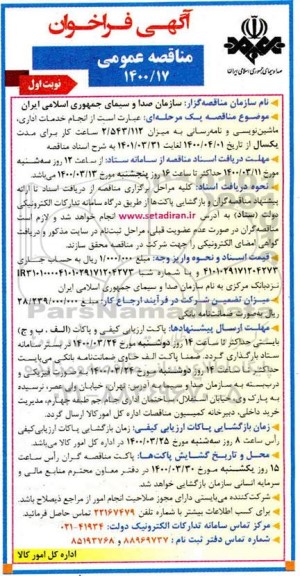 آگهی فراخوان
مناقصه عمومی
۱۴۰۰/۱۷
صدا و سیمای جمهوری اسلامی ایران
نوبت اول
نام سازمان مناقصه‌گزار: سازمان صدا و سیمای جمهوری اسلامی ایران
موضوع مناقصه یک مرحله‌ای: عبارت است از انجام خدمات اداری،
ماشین‌نویسی و نامه‌رسانی به میزان ۲/۵۴۳/۱۱۳ ساعت کار برای مدت
یکسال از تاریخ ۱۴۰۰/۰۴/۰۱ لغایت ۱۴۰۱/۰۳/۳۱ به شرح اسناد مناقصه
مهلت دریافت اسناد مناقصه از سامانه ستاد: از ساعت ۱۲ روز سه‌شنبه
مورخ ۱۴۰۰/۰۳/۱۱ حداکثر تا ساعت ۱۶ روز پنجشنبه مورخ ۱۴۰۰/۰۳/۱۳ می‌باشد
نحوه دریافت اسناد: کلیه مراحل برگزاری مناقصه از دریافت اسناد تا ارائه
پیشنهاد مناقصه‌گران و بازگشایی پاکت‌ها از طریق درگاه سامانه تدارکات الکترونیکی
دولت (ستاد) به آدرس www.setadiran.ir انجام خواهد شد و لازم است
مناقصه‌گران در صورت عدم عضویت قبلی مراحل ثبت‌نام در سایت مذکور و دریافت
گواهی امضای الکترونیکی را جهت شرکت در مناقصه محقق سازند
قیمت اسناد و نحوه واریز وجه: مبلغ ۱/۰۰۰/۰۰۰ ریال به حساب جاری
نزد بانک مرکزی به نام سازمان صدا و سیمای جمهوری اسلامی ایران
میزان تضمین شرکت در فرآیند ارجاع کار: مبلغ ۲۸/۲۳۹/۰۰۰/۰۰۰
ریال به‌صورت ضمانت‌نامه بانکی
مهلت ارسال پیشنهادها: پاکت ارزیابی کیفی و پاکات (الف، ب و ج)
بایستی حداکثر تا ساعت ۱۴ روز دوشنبه مورخ ۱۴۰۰/۰۳/۲۴ در بستر سامانه
ستاد بارگذاری گردد. ضمنا پاکت الف حاوی ضمانت‌نامه بانکی می‌بایست
حداکثر تا ساعت ۱۴ روز دوشنبه مورخ ۱۴۰۰/۰۳/۲۴ به صورت فیزیکی و
دربسته به سازمان صدا و سیما به آدرس: تهران، خیابان ولیعصر، نرسیده
به پارک وی، خیابان استقلال، ساختمان اداری جام‌جم، طبقه چهارم، مدیریت
خرید داخلی، دبیرخانه کمیسیون مناقصات اداره کل امور کالا ارسال گردد.
زمان بازگشایی پاکات ارزیابی کیفی: زمان بازگشایی پاکات ارزیابی‌کیفی
رأس ساعت ۸ روز سه‌شنبه مورخ ۱۴۰۰/۰۳/۲۵ در اداره کل امور کالا می‌باشد.
محل و تاریخ گشایش پاکت‌ها: پاکت مناقصه گران رأس ساعت
۱۵ روز یکشنبه مورخ ۱۴۰۰/۰۳/۳۰ در دفتر معاون محترم منابع مالی و
سرمایه انسانی سازمان بازگشایی خواهد شد.
شرکت‌کننده می‌بایستی دارای مجوز صلاحیت انجام امور از مراجع ذیصلاح باشد.
برای کسب اطلاعات بیشتر با شماره تلفن ۲۲۱۶۷۴۷۹ تماس حاصل فرمائید.
مرکز تماس سامانه تدارکات الکترونیک دولت: ۴۱۹۳۴-۰۲۱
شماره تماس دفتر ثبت نام: ۸۸۹۶۹۷۳۷ و ۸۵۱۹۳۷۶۸
اداره کل امور کالا